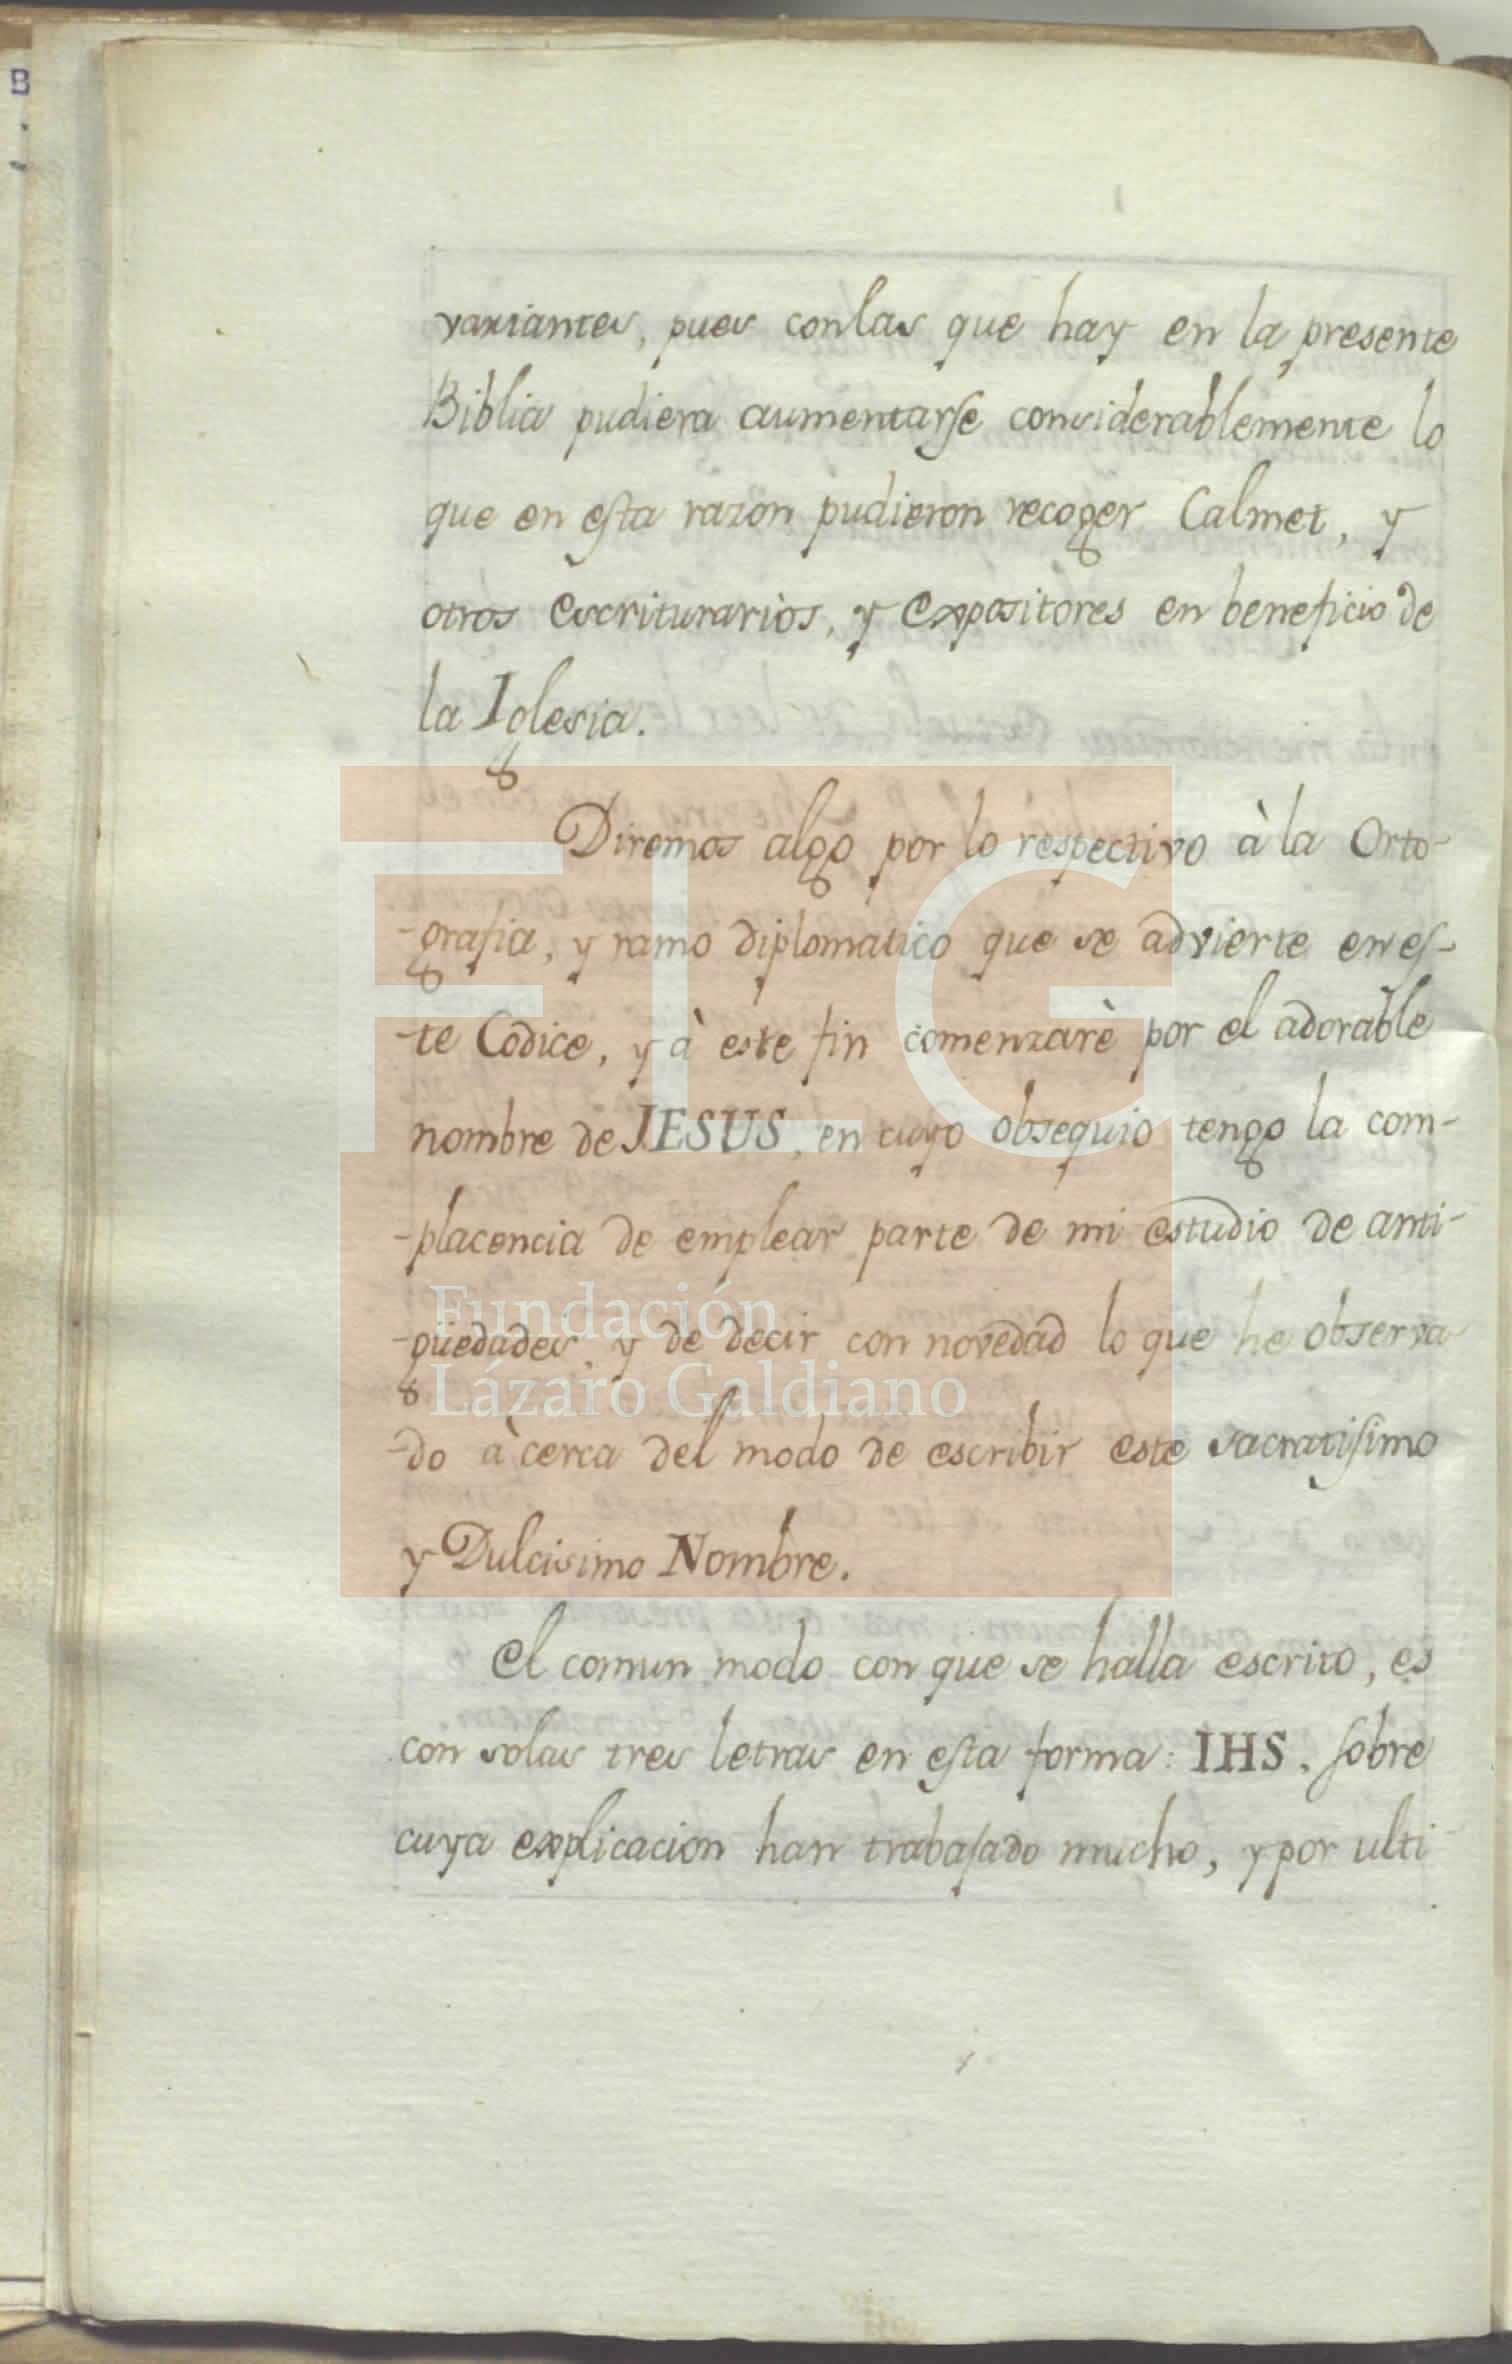 variantes, pues conlas que hay en la presente
Biblia pudiera aumentarse considerablemente lo
que en esta razon pudieron recoger Calmet, y
otros escriturarios, y expositores en beneficio de
la Iglesia.
Diremos algo por lo respectivo à la Orto-
-grafia, y ramo diplomatico que se advierte en es-
-te Codice, y à este fin comenzarè por el adorable
nombre de JESUS, en cuyo obsequio tengo la com-
-placencia de emplear parte de mi estudio de anti-
-güedades, y de decir con novedad lo que he observa-
-do à cerca del modo de escribir este sacratisimo
y Dulcisimo Nombre.
El comun modo con que se halla escrito, es
con solas tres letras en esta forma: IHS. sobre
cuya explicacion han trabajado mucho, y por ulti-
FLG
Fundación
Lázaro Galdiano
B